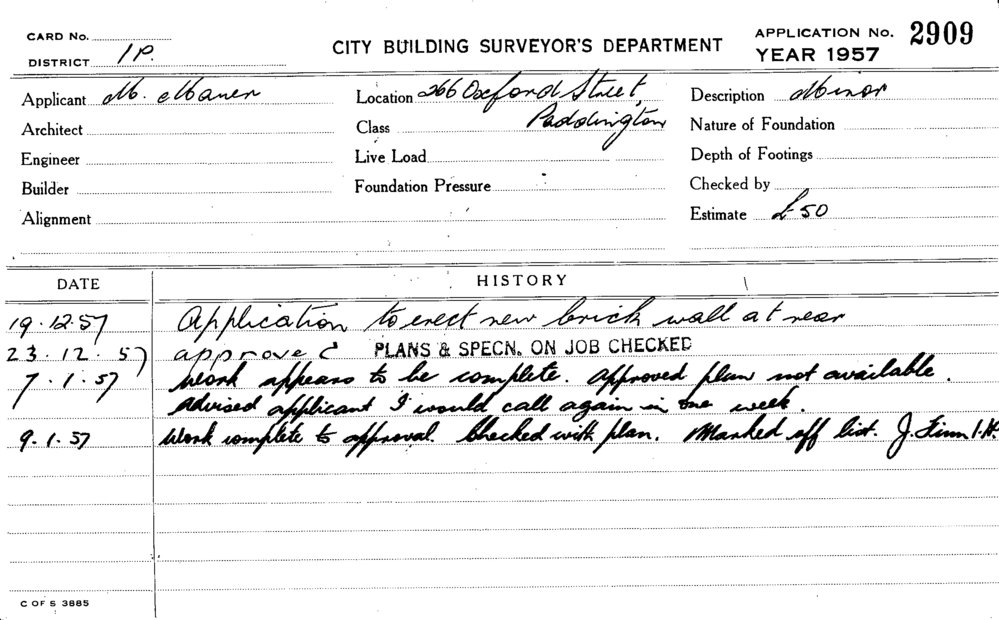 CARD No.
DISTRICT 1P.
CITY BUILDING SURVEYOR'S DEPARTMENT
APPLICATION No. 2909
YEAR 1957
Applicant M.
Location 266 Oxford Street,
Description Minor
Architect
Class Paddington
Nature of Foundation
Engineer
Live Load
Depth of Footings
Builder
Foundation Pressure
Checked by
Alignment
Estimate £50
DATE HISTORY
19.12.57 Application to erect new brick wall at rear
23.12.57 approved PLANS & SPECN. ON JOB CHECKED
7.1.57 Work appears to be complete. Approved plan not available.
Advised applicant I would call again in one week.
9.1.57 Work complete to approval. Checked with plan. Marked off list. J.
C OF S 3885